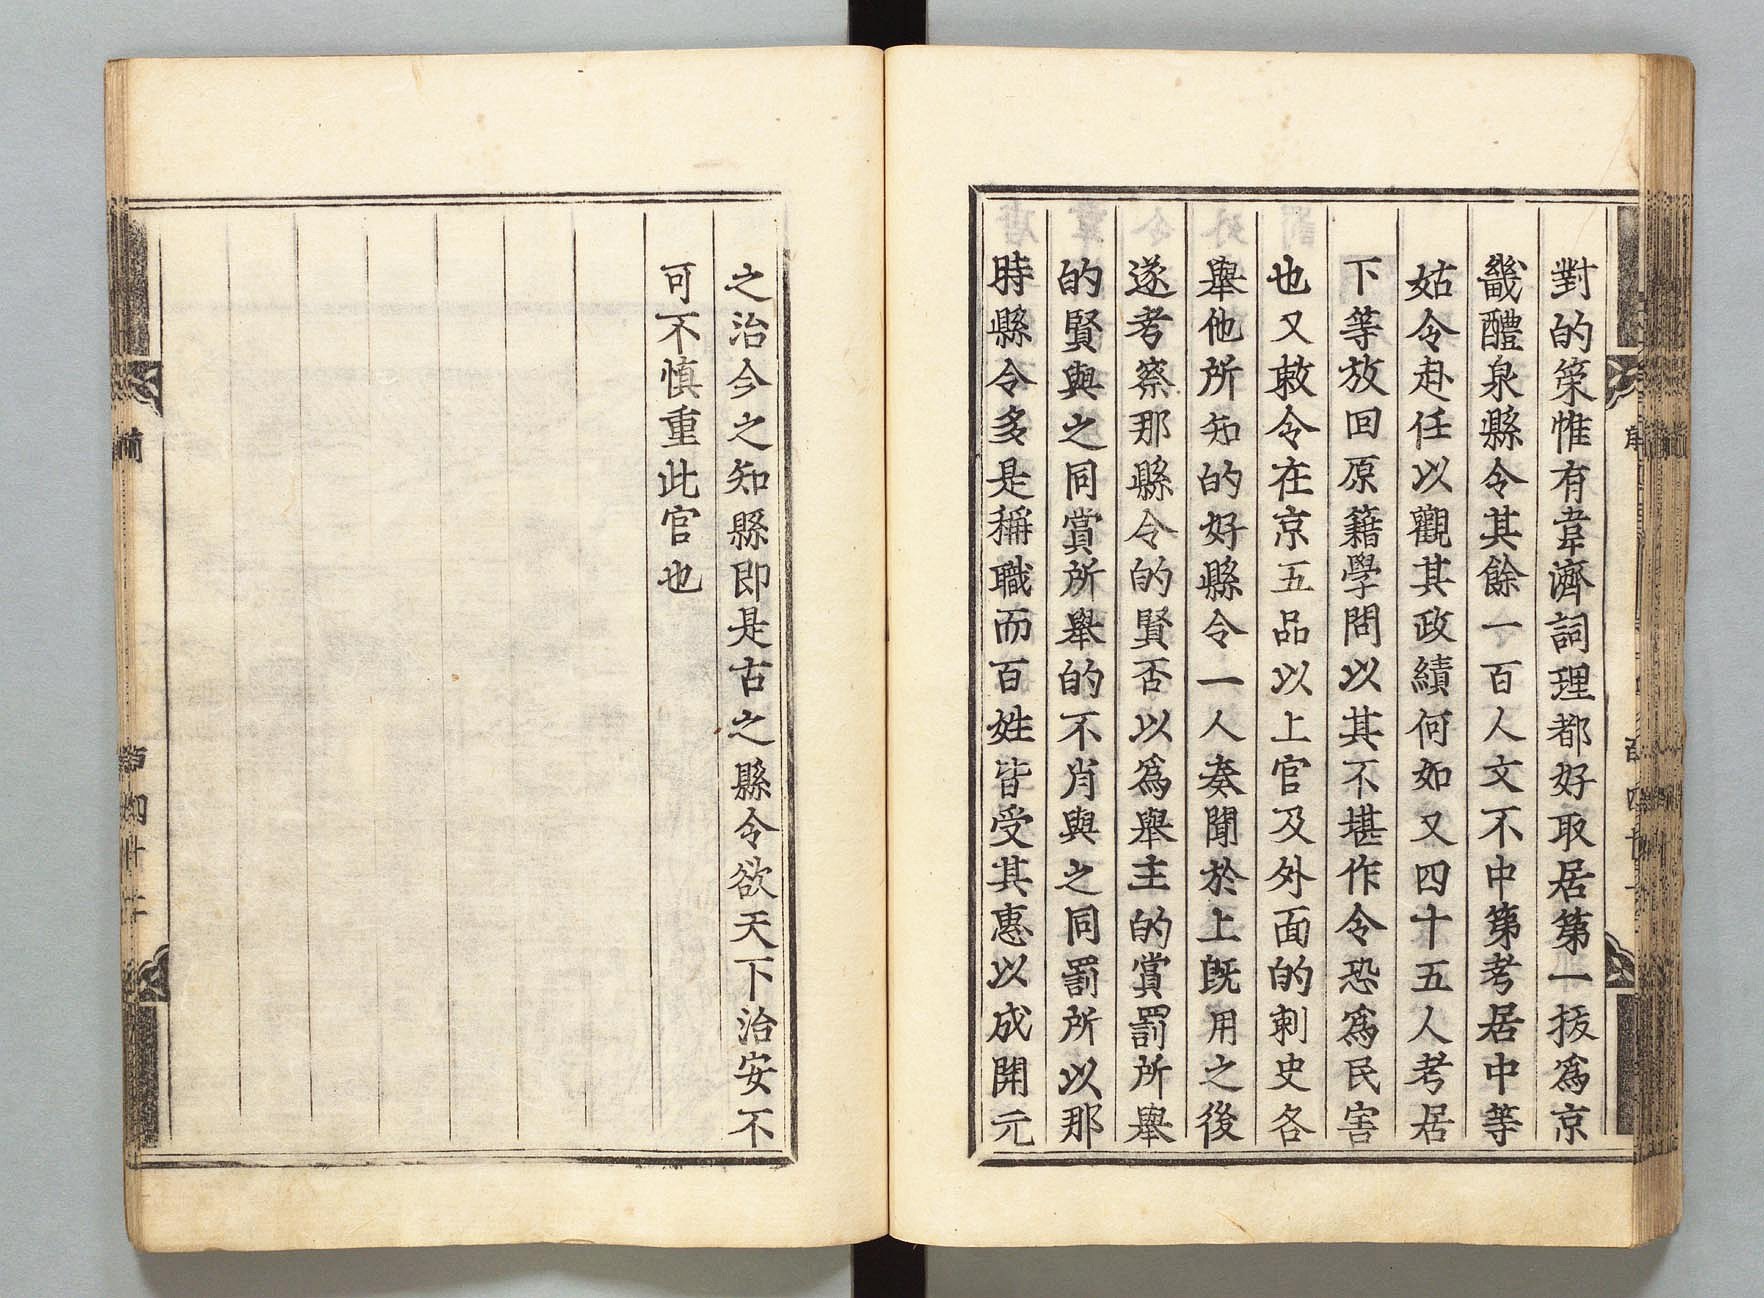 對的策惟有韋濟詞理都好取居第一拔爲京
畿醴泉縣令其餘一百人文不中第考居中等
姑令赴任以觀其政績何如又四十五人考居
下等放回原籍學問以其不堪作令恐爲民害
也又敕令在京五品以上官及外面的刺史各
舉他所知的好縣令一人奏聞於上旣用之後
遂考察那縣令的賢否以爲舉主的賞罰所舉
的賢與之同賞所舉的不肖與之同罰所以那
時縣令多是稱職而百姓皆受其惠以成開元
之治今之知縣即是古之縣令欲天下治安不
可不慎重此官也